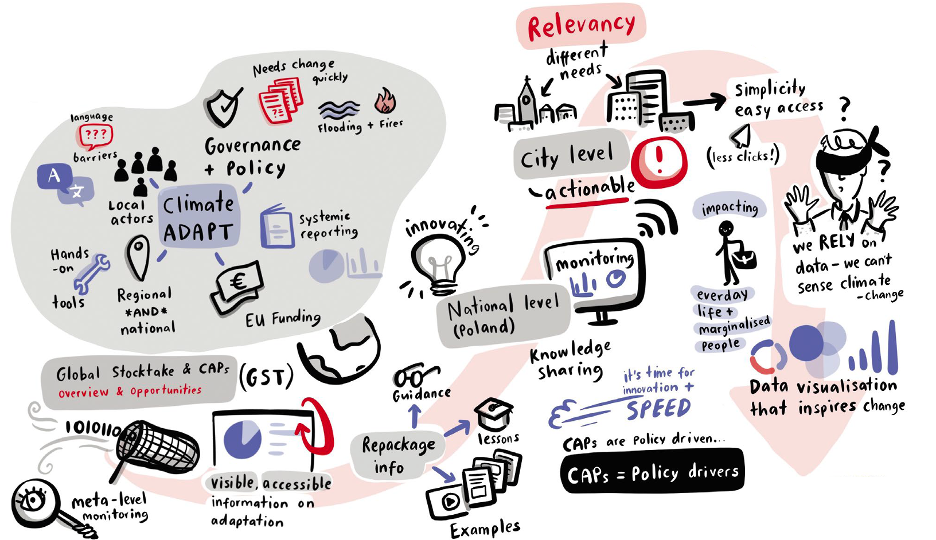 Relevancy
different
needs
Simplicity
easy access
(less clicks!)
City level
actionable
!
?
?
we RELY on
data – we can't
sense climate
– change
impacting
everday
life +
marginalised
people
Data visualisation
that inspires change
Needs change
quickly
???
Flooding + Fires
language
???
barriers
Governance
+ Policy
A
文
Local
actors
Climate
ADAPT
Systemic
reporting
Hands
-on
tools
Regional
*AND*
national
€
EU Funding
innovating
monitoring
National level
(Poland)
Knowledge
sharing
it's time for
innovation +
SPEED
CAPs are Policy driven...
CAPs = Policy drivers
Global Stocktake & CAPs
overview & opportunities
(GST)
1010110
meta-level
monitoring
visible, accessible
information on
adaptation
Guidance
Repackage
info
lessons
Examples